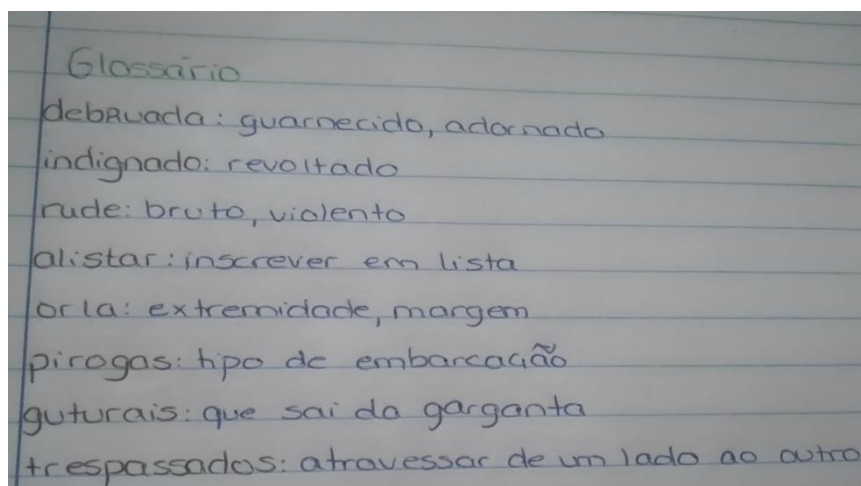 Glossário
debRuada: guarnecido, adornado
indignado: revoltado
rude: bruto, violento
alistar: inscrever em lista
orla: extremidade, margem
pirogas: tipo de embarcação
guturais: que sai da garganta
trespassados: atravessar de um lado ao outro